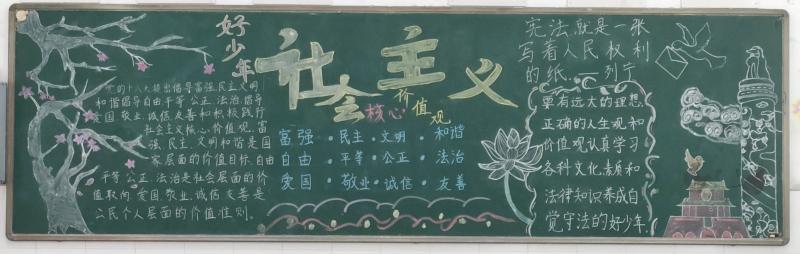 好少年
党的十八大提出倡导富强、民主、文明、
和谐倡导自由平等、公正、法治,倡导
爱国、敬业、诚信、友善和积极践行
社会主义核心价值观,富
强、民主、文明和谐是国
家层面的价值目标,自由
平等、公正、法治是社会层面的价
值取向,爱国、敬业、诚信、友善是
公民个人层面的价值准则。
社会主义
核心价值观
富强·民主·文明·和谐
自由·平等·公正·法治
爱国·敬业·诚信·友善
宪法,就是一张
写着人民权利
的纸。 列宁
要有远大的理想、
正确的人生观和
价值观认真学习
各科文化素质和
法律知识养成自
觉守法的好少年.